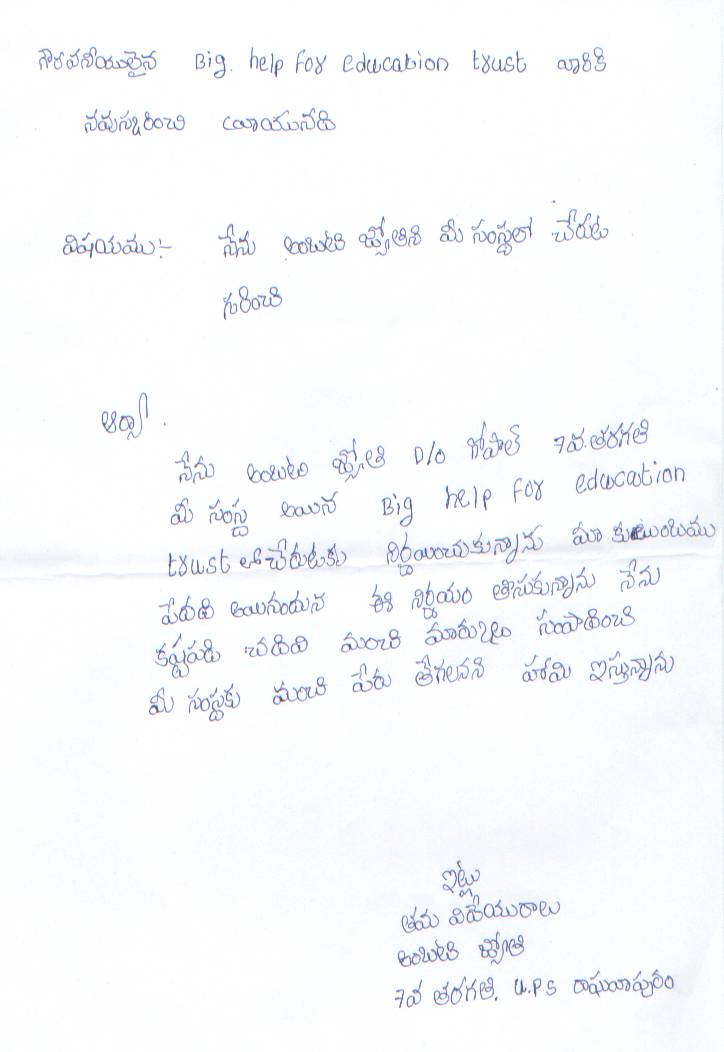 గౌరవనీయులైన Big. help for education trust వారికి
నమస్కరించి వ్రాయునది
విషయము:- నేను అంబటి జ్యోతి మీ సంస్థలో చేరుట
గురించి
ఆర్యా.
నేను అంబటి జ్యోతి D/o గోపాల్ 7వ.తరగతి
మీ సంస్థ అయిన Big help for education
trust లో చేరుటకు నిర్ణయించుకున్నాను మా కుటుంబము
పేదది అయినందున ఈ నిర్ణయం తీసుకున్నాను నేను
కష్టపడి చదివి మంచి మార్కులు సంపాదించి
మీ సంస్థకు మంచి పేరు తేగలనని హామి ఇస్తున్నాను
ఇట్లు
తమ విదేయురాలు
అంబటి జ్యోతి
7వ తరగతి. U.P.S రాఘవాపురం